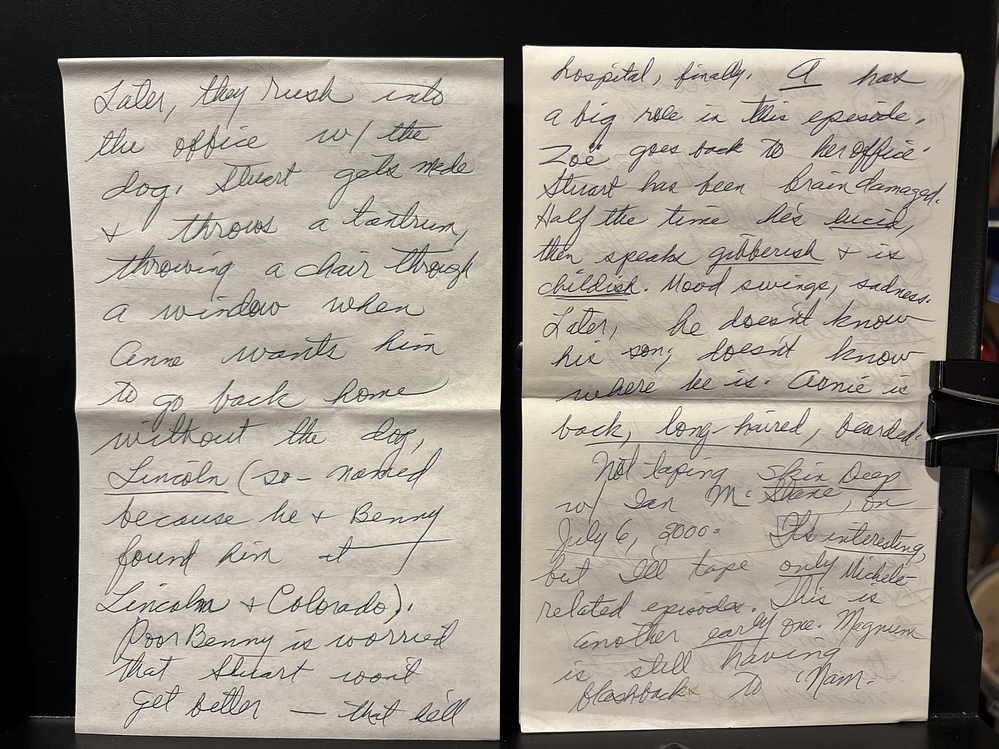 Later, they rush into
the office w/ the
dog. Stuart gets made
& throws a tantrum,
throwing a chair through
a window when
Anne wants him
to go back home
without the dog,
Lincoln (so-named
because he & Benny
found him at
Lincoln & Colorado).
Poor Benny is worried
that Stuart won't
get better — that he'll
hospital, finally. A has
a big role in this episode.
Zoë goes back to her office.
Stuart has been brain damaged.
Half the time he's lucid,
then speaks gibberish & is
childish. Mood swings, sadness.
Later, he doesn't know
his son; doesn't know
where he is. Arnie is
back, long-haired, bearded.
Not taping Skin Deep
w/ Ian McShane, on
July 6, 2000. It's interesting,
but I'll tape only Michele-
related episodes. This is
another early one. Magnum
is still having
flashbacks to 'Nam.